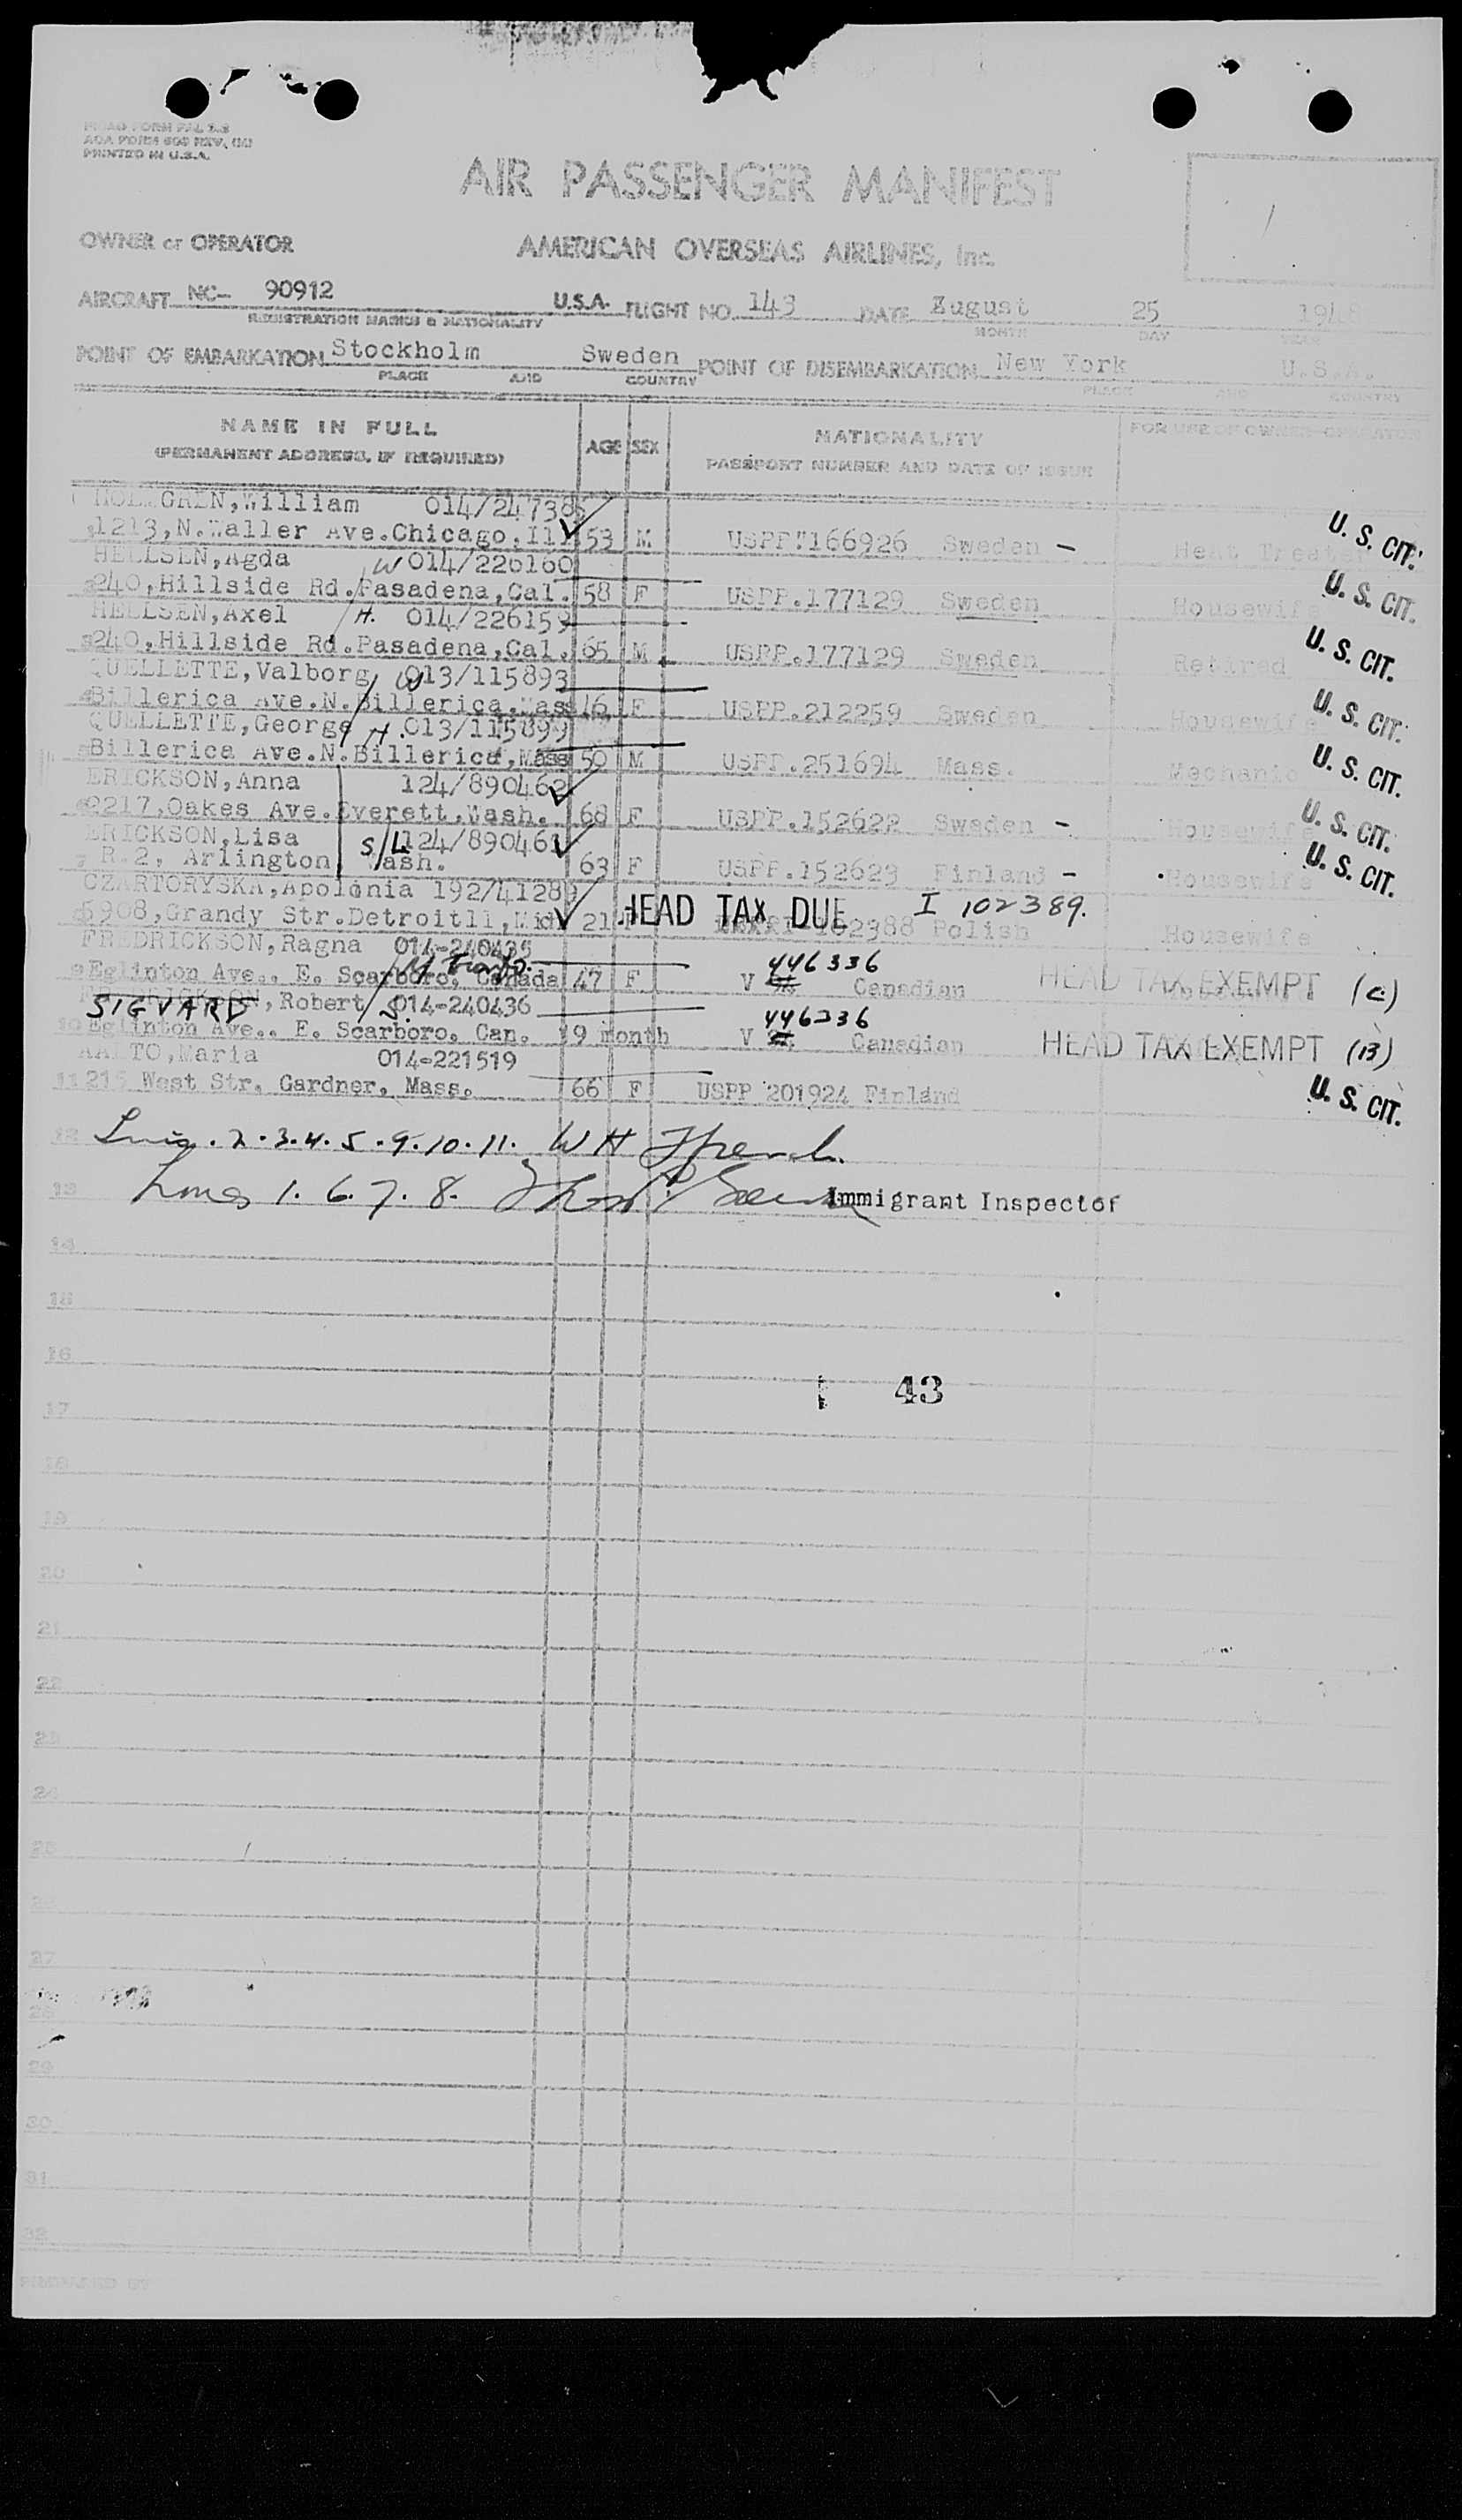 PRINTED IN U.S.A.
AIR PASSENGER MANIFEST
OWNER or OPERATOR AMERICAN OVERSEAS AIRLINES, Inc.
AIRCRAFT NC- 90912 U.S.A. FLIGHT NO. 143 DATE August 25 1948
REGISTRATION MARKS & NATIONALITY MONTH DAY YEAR
POINT OF EMBARKATION Stockholm Sweden POINT OF DISEMBARKATION New York U.S.A.
PLACE AND COUNTRY PLACE AND COUNTRY
NAME IN FULL AGE SEX NATIONALITY FOR USE OF OWNER OPERATOR
(PERMANENT ADDRESS, IF REQUIRED) PASSPORT NUMBER AND DATE OF ISSUE
HOLMGREN,William 014/247385
1213,N.Waller Ave.Chicago,Ill 53 M USPP.166926 Sweden - Heat Treater U. S. CIT.
HELLSEN,Agda W 014/226160
240,Hillside Rd.Pasadena,Cal. 58 F USPP.177129 Sweden Housewife U. S. CIT.
HELLSEN,Axel H. 014/226159
240,Hillside Rd.Pasadena,Cal. 65 M USPP.177129 Sweden Retired U. S. CIT.
QUELLETTE,Valborg W 013/115893
Billerica Ave.N.Billerica,Mass 46 F USPP.212259 Sweden Housewife U. S. CIT.
QUELLETTE,George H. 013/115899
Billerica Ave.N.Billerica,Mass 50 M USPP.251694 Mass. Mechanic U. S. CIT.
ERICKSON,Anna 124/890462
2217,Oakes Ave.Everett,Wash. 68 F USPP.152622 Sweden - Housewife U. S. CIT.
ERICKSON,Lisa S/L 124/890461
7 R.2, Arlington, Wash. 63 F USPP.152623 Finland - Housewife U. S. CIT.
CZARTORYSKA,Apolonia 192/41289
5908,Grandy Str.Detroit11,Mich 21 F HEAD TAX DUE I 102389. 102388 Polish Housewife
FREDRICKSON,Ragna 014-240435
9 Eglinton Ave., E. Scarboro, Canada 47 F V 446336 Canadian HEAD TAX EXEMPT (c)
SIGVARD, Robert S. 014-240436
10 Eglinton Ave., E. Scarboro, Can. 19 month V 446336 Canadian HEAD TAX EXEMPT (B)
AALTO,Maria 014-221519
11 215 West Str. Gardner, Mass. 66 F USPP 201924 Finland U. S. CIT.
12 Lines . 2 . 3 . 4 . 5 . 9 . 10 . 11 . W H
13 Lines 1. 6. 7. 8. Immigrant Inspector
14
15
16
43
17
18
19
20
21
22
23
24
25
26
27
28
29
30
31
32
PREPARED BY